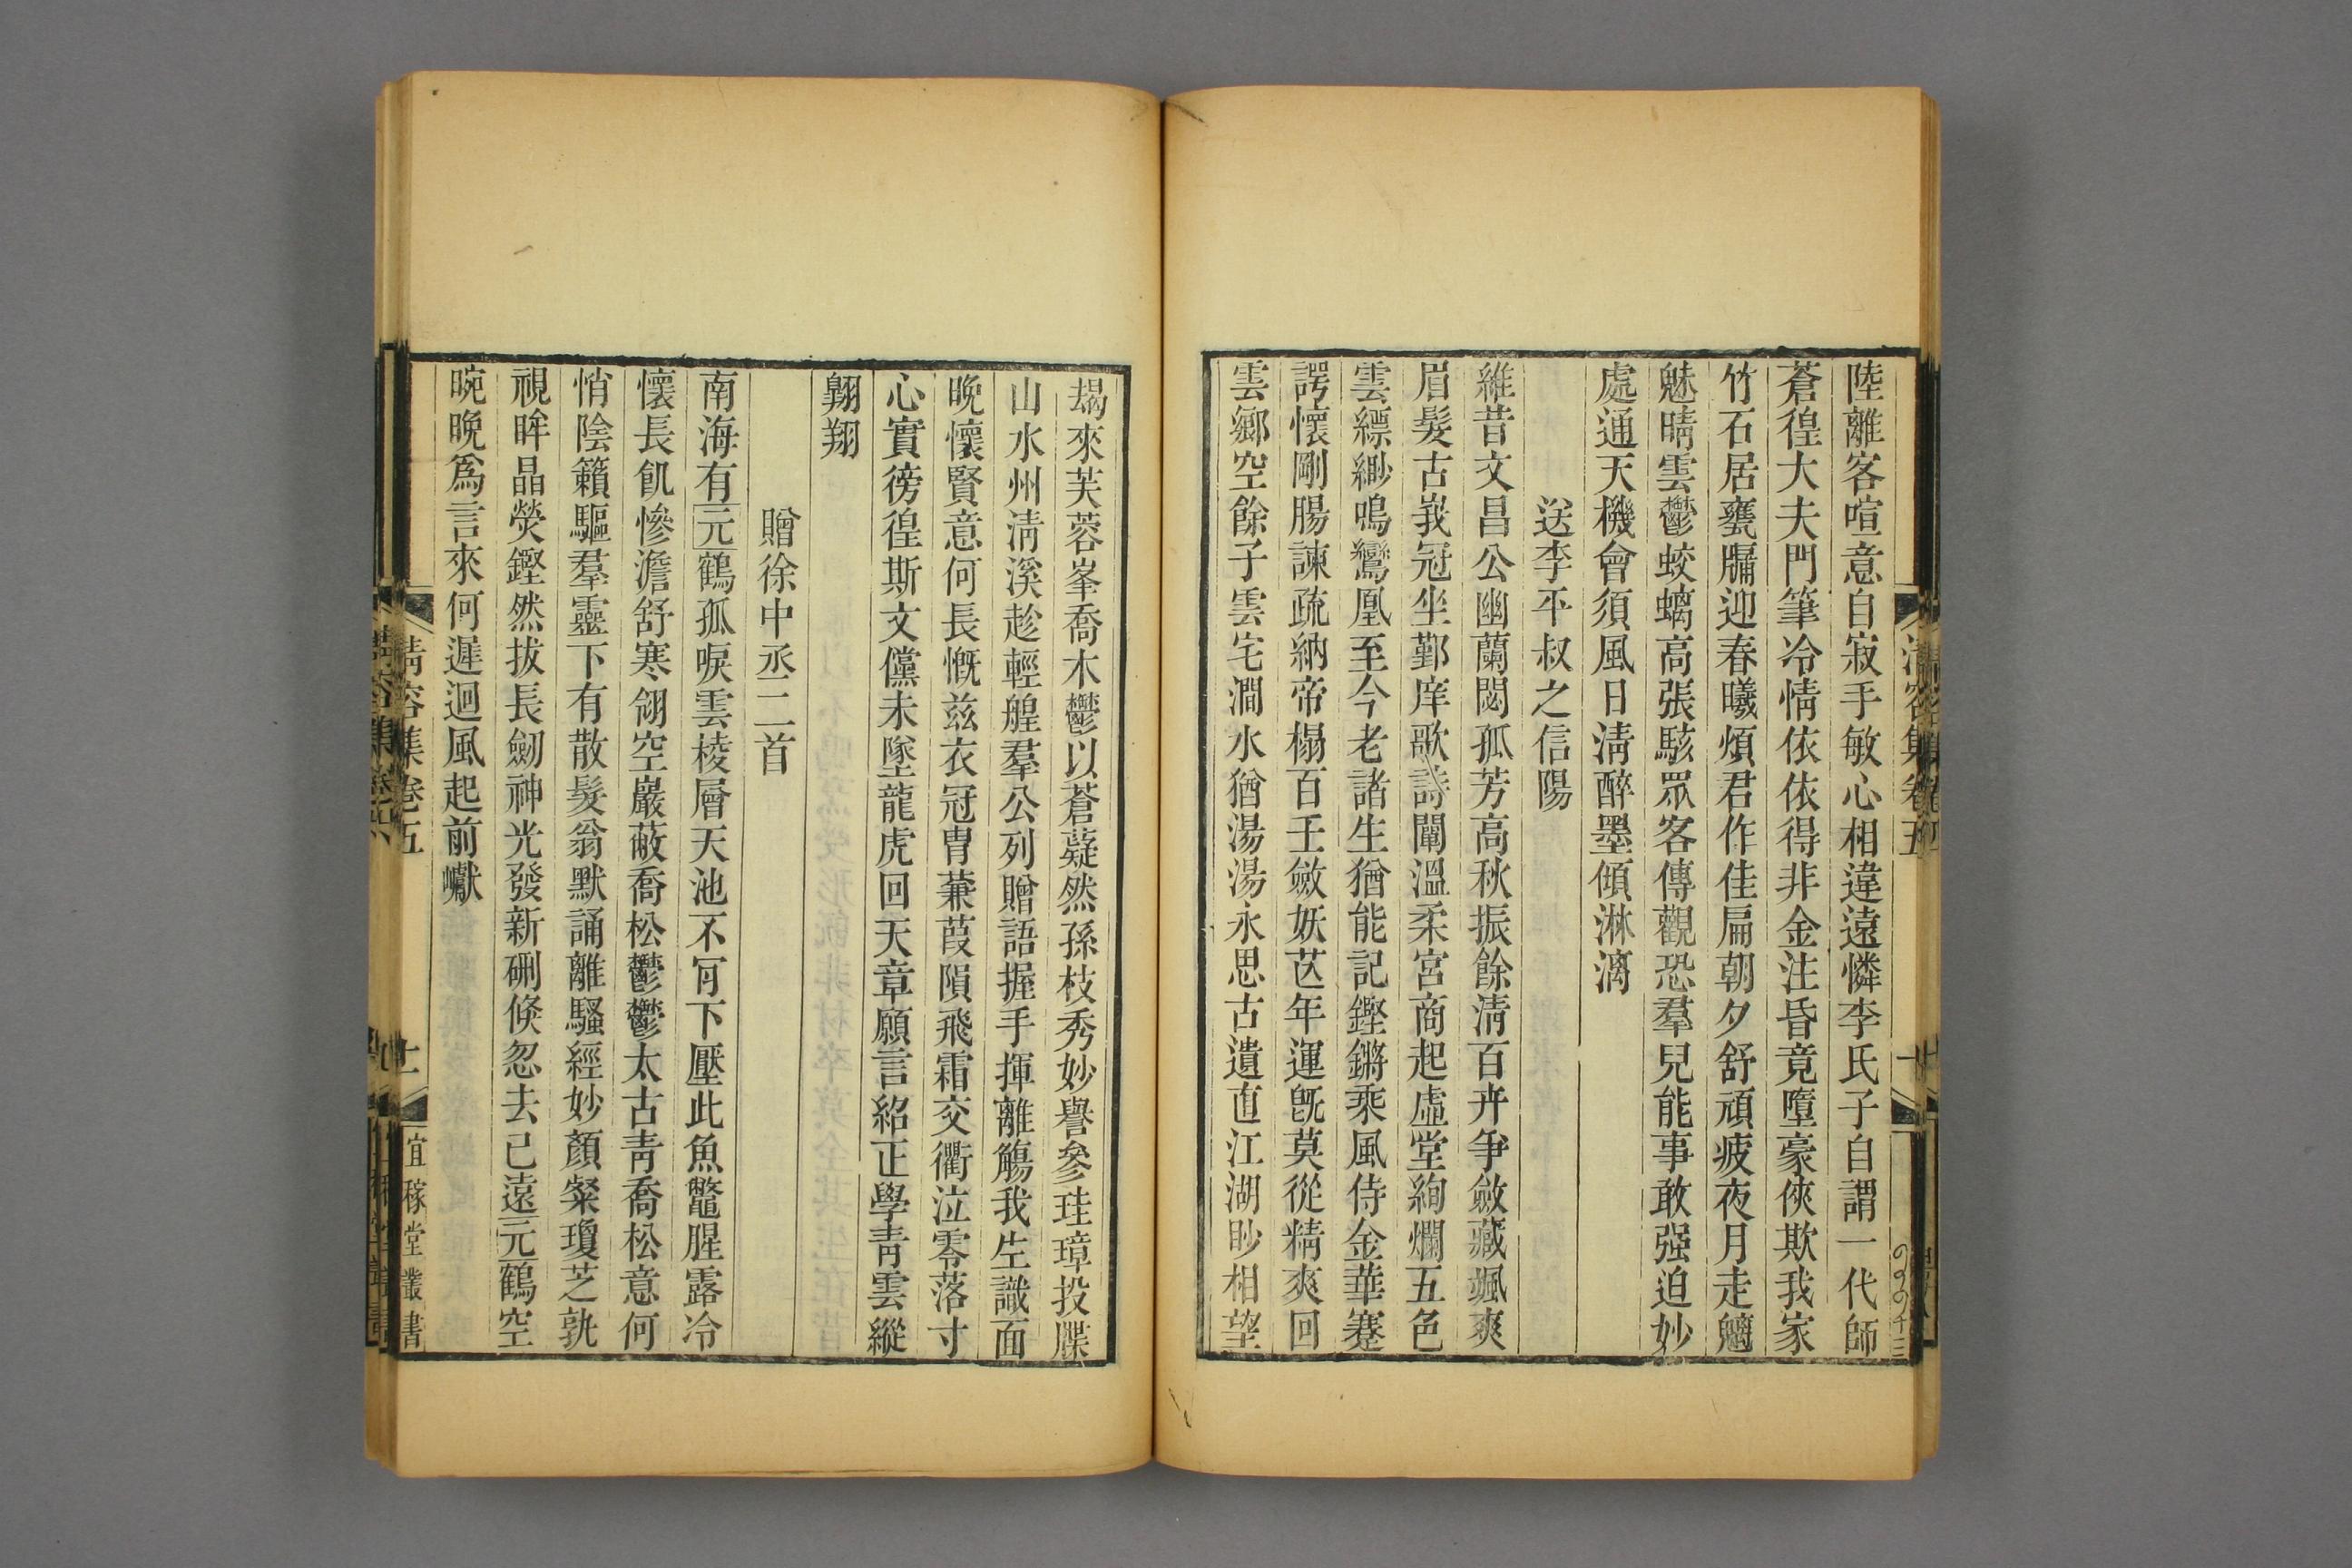 陸離客喧意自寂手敏心相違遠憐李氏子自謂一代師
蒼徨大夫門筆冷情依依得非金注昏竟墮豪俠欺我家
竹石居甕牖迎春曦煩君作佳扁朝夕舒頑疲夜月走魑
魅晴雲鬱蛟螭高張駭眾客傳觀恐羣兒能事敢强迫妙
處通天機會須風日淸醉墨傾淋漓
送李平叔之信陽
維昔文昌公幽蘭閟孤芳高秋振餘淸百卉爭斂藏颯爽
眉髮古峩冠坐鄞庠歌詩闡溫柔宮商起虛堂絢爛五色
雲縹緲鳴鸞凰至今老諸生猶能記鏗鏘乘風侍金華蹇
諤懷剛腸諫疏納帝榻百壬斂妖芒年運旣莫從精爽回
雲鄉空餘子雲宅澗水猶湯湯永思古遺直江湖眇相望
朅來芙蓉峯喬木鬱以蒼薿然孫枝秀妙譽參珪璋投牒
山水州淸溪趁輕艎羣公列贈語握手揮離觴我生識面
晚懷賢意何長慨兹衣冠胄蒹葭隕飛霜交衢泣零落寸
心實徬徨斯文儻未墜龍虎回天章願言紹正學靑雲縱
翺翔
贈徐中丞二首
南海有元鶴孤唳雲棱層天池不肎下壓此魚鼈腥露冷
懷長飢慘澹舒寒翎空巖蔽喬松鬱鬱太古靑喬松意何
悄陰籟驅羣靈下有散髮翁默誦離騷經妙顏粲瓊芝孰
視眸晶熒鏗然拔長劒神光發新硎倏忽去已遠元鶴空
晼晚爲言來何遲迴風起前巘
淸容集卷五
宜稼堂叢書
淸容集卷五